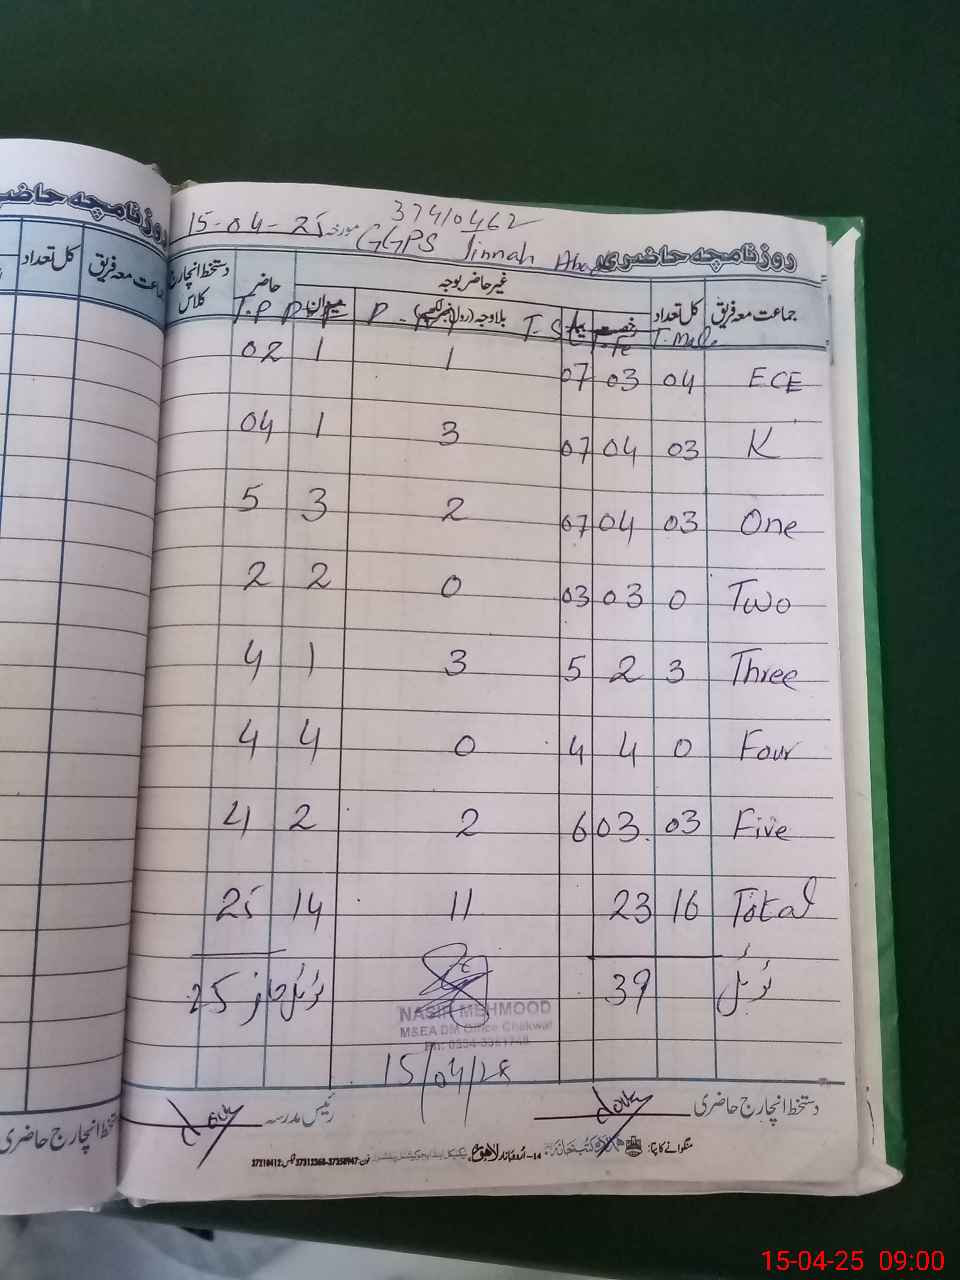 روزنامچہ حاضری
کل تعداد
37410462
15-04-25 مورخہ GGPS Jinnah
روزنامچہ حاضری
جماعت معہ فریق کل تعداد رخصت بیمار غیر حاضر بوجہ حاضر دستخط انچارج کلاس
بلاوجہ (رول نمبر لکھیں) میزان
T. Male T. Fe T. S P P T.P
ECE 04 03 07 1 1 02
K 03 04 07 3 1 04
One 03 04 07 2 3 5
Two 0 03 03 0 2 2
Three 3 2 5 3 1 4
Four 0 4 4 0 4 4
Five 03 03 6 2 2 4
Total 16 23 11 14 25
ٹوٹل 39 ٹوٹل حاضر 25
NASIR MEHMOOD
M&EA DM Office Chakwal
15/04/25
دستخط انچارج حاضری
رئیس مدرسہ
منگوانے کا پتہ: کتب خانہ 14-اُردو بازار لاہور فون: 37313360-37350947 فیکس: 37310412
15-04-25 09:00